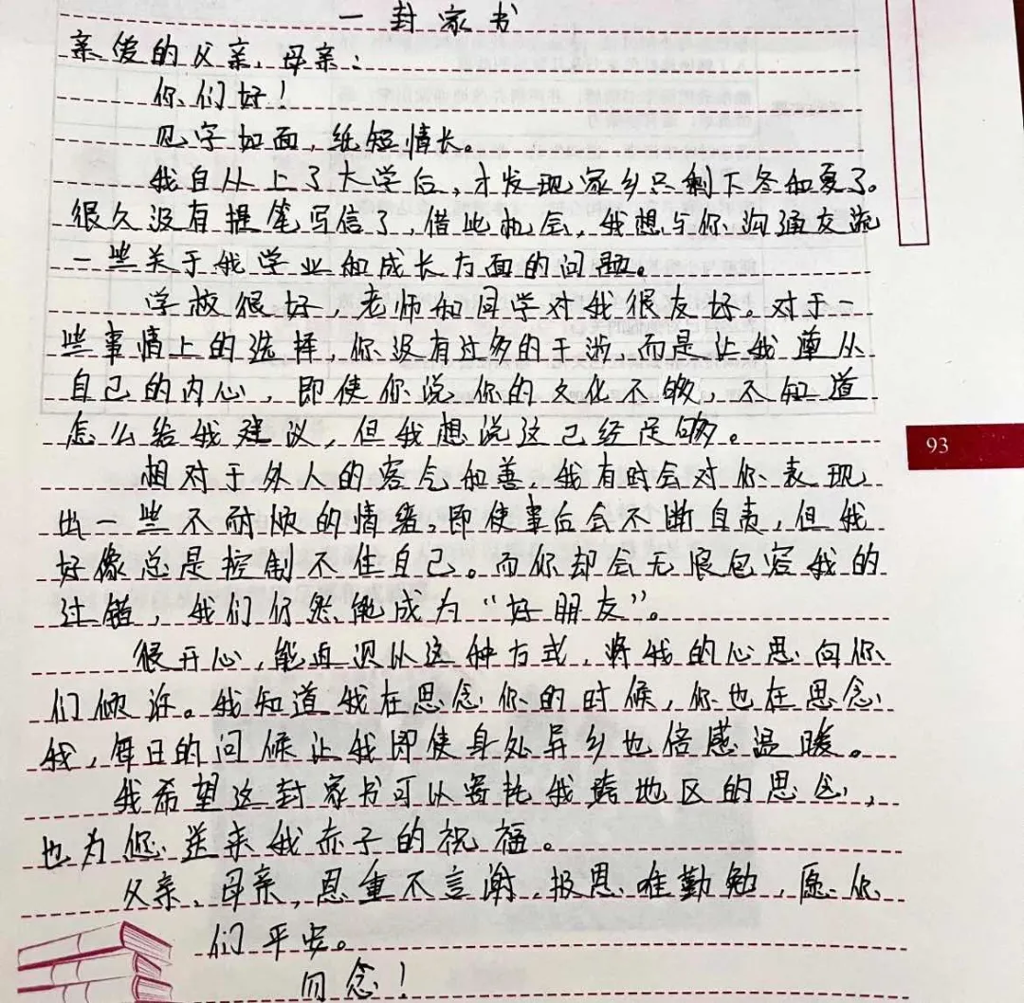 一封家书
亲爱的父亲、母亲：
你们好！
见字如面，纸短情长。
我自从上了大学后，才发现家乡只剩下冬和夏了。
很久没有提笔写信了，借此机会，我想与你沟通交流
一些关于我学业和成长方面的问题。
学校很好，老师和同学对我很友好。对于一
些事情上的选择，你没有过多的干涉，而是让我遵从
自己的内心，即使你说你的文化不够，不知道
怎么给我建议，但我想说这已经足够。
相对于外人的客气和善，我有时会对你表现
出一些不耐烦的情绪，即使事后会不断自责，但我
好像总是控制不住自己。而你却会无限包容我的
过错，我们仍然能成为“好朋友”。
很开心，能再次以这种方式，将我的心思向你
们倾诉。我知道我在思念你的时候，你也在思念
我，每日的问候让我即使身处异乡也倍感温暖。
我希望这封家书可以寄托我跨地区的思念，
也为您送来我赤子的祝福。
父亲、母亲，恩重不言谢，报恩唯勤勉，愿你
们平安。
勿念！
93